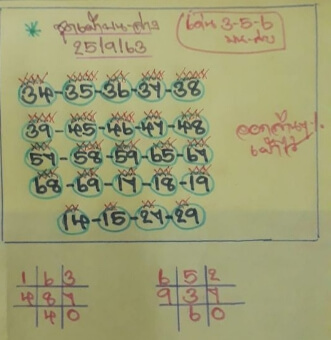 เด่น 3-5-6
บน-ล่าง
25/9/63
34-35-36-37-38
39-45-46-47-48
57-58-59-65-67
68-69-17-18-19
14-15-27-29
1 6 3
4 8 7
4 0
6 5 2
9 3 7
6 0